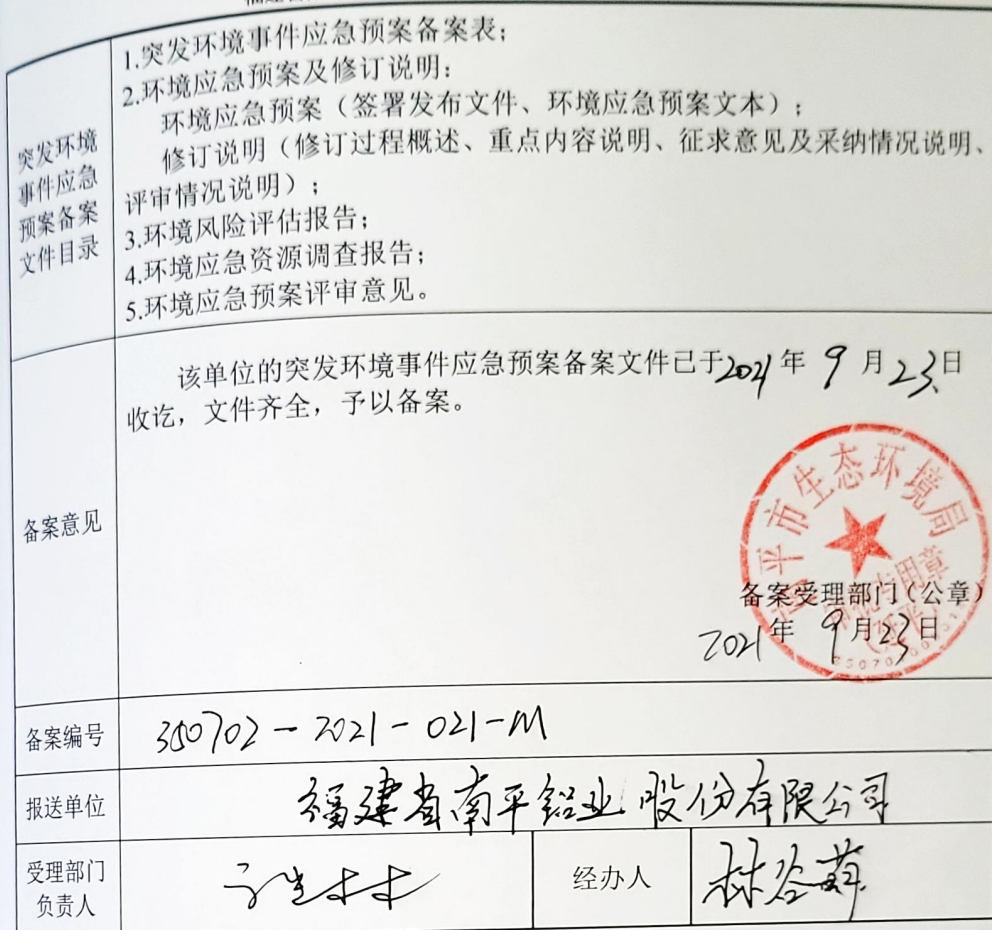 突发环境
事件应急
预案备案
文件目录
1.突发环境事件应急预案备案表；
2.环境应急预案及修订说明：
环境应急预案（签署发布文件、环境应急预案文本）；
修订说明（修订过程概述、重点内容说明、征求意见及采纳情况说明、
评审情况说明）；
3.环境风险评估报告；
4.环境应急资源调查报告；
5.环境应急预案评审意见。
备案意见
该单位的突发环境事件应急预案备案文件已于2021年9月23日
收讫，文件齐全，予以备案。
南平市生态环境局
备案受理部门（公章）
2021年9月23日
备案编号
350702-2021-021-M
报送单位
福建省南平铝业股份有限公司
受理部门
负责人
经办人